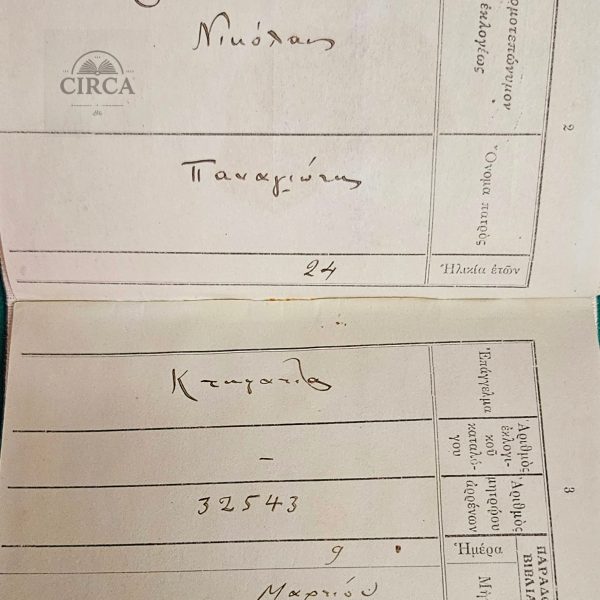 CIRCA
Νικόλαος
ὀνοματεπώνυμον
ἐκλογέως
2
Παναγιώτης
Ὄνομα πατρὸς
24
Ἡλικία ἐτῶν
Κτηματίας
Ἐπάγγελμα
–
Ἀριθμὸς
ἐκλογι-
κοῦ
καταλό-
γου
32543
Ἀριθμὸς
μητρῴου
ἀρρένων
3
9
Ἡμέρα
Μαρτίου